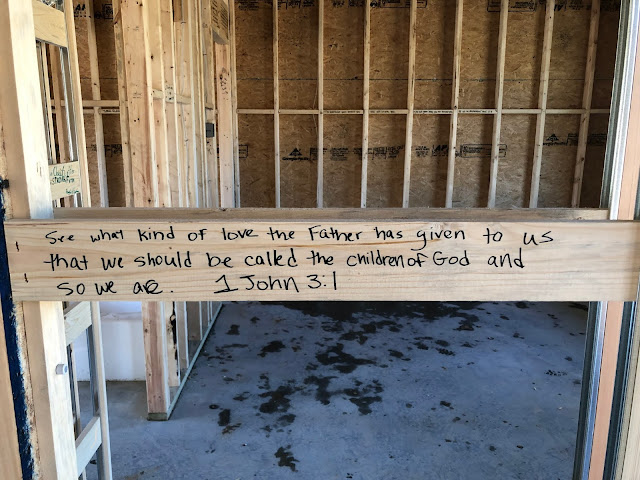 See what kind of love the Father has given to us
that we should be called the children of God and
so we are. 1 John 3:1